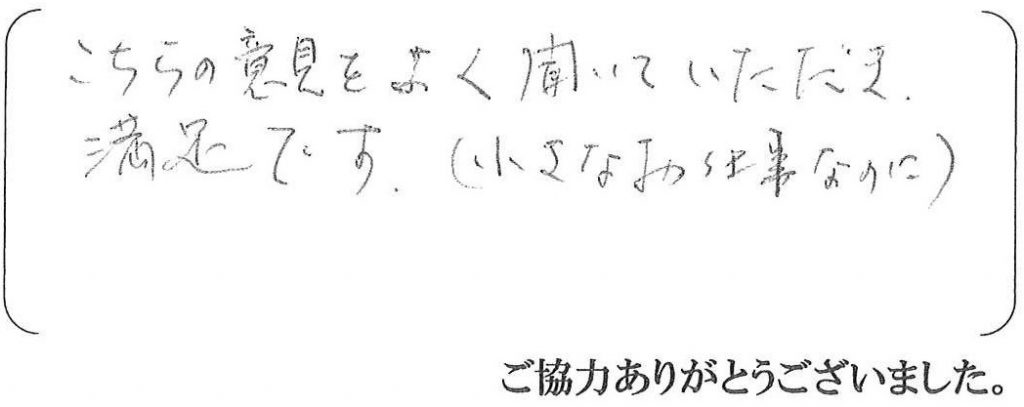 こちらの意見をよく聞いていただき.
満足です.(小さなお仕事なのに)
ご協力ありがとうございました。